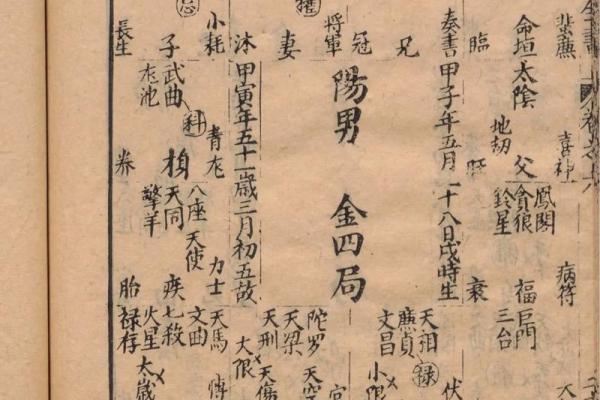 蜚廉
喜神
病符
命垣太陰
地劫
父
鳳閣
貪狼
鈴星
福巨門
三台
臨
衰
奏書
甲子年五月二十八日戌時生
天相
廉貞
祿
文昌
小限
伏
兄
冠
將軍
陽男
金四局
妻
沐
甲寅年五十一歲三月初五故
陀罗
天空
天梁
天刑
天傷
大限
小耗
青龙
力士
天馬
博
子武曲
科
八座
天使
文曲
龙池
天同
擎羊
疾七殺
火星
太歲
長生
养
胎祿存